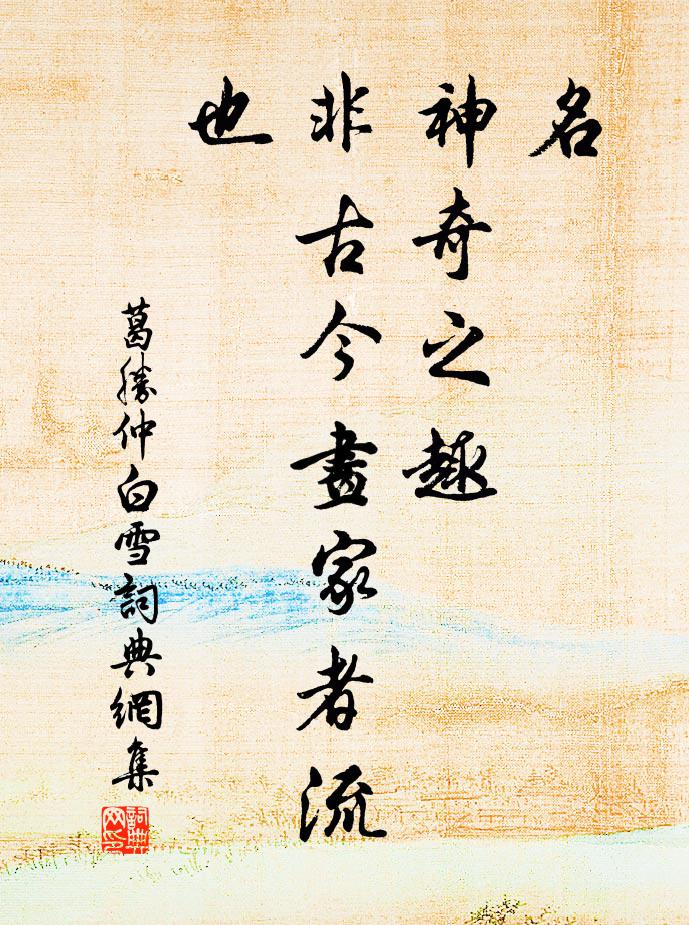 名
神奇之趣
非古今畫家者流
也
葛勝仲白雪詞典網集
詞典